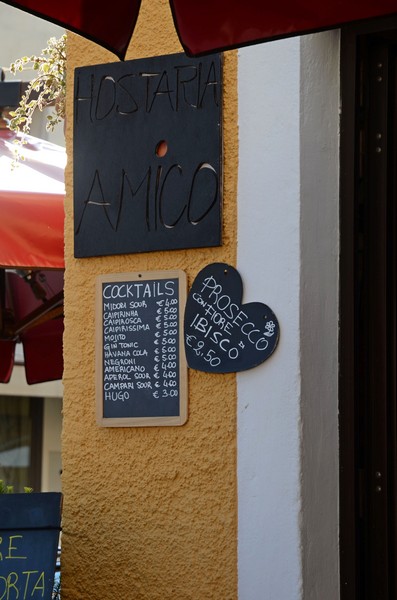 HOSTARIA
AMICO
COCKTAILS
MIDORI SOUR € 4.00
CAIPIRINHA € 5.00
CAIPIROSCA € 5.00
CAIPIRISSIMA € 5.00
MOJITO € 5.00
GIN TONIC € 5.00
HAVANA COLA € 6.00
NEGRONI € 5.00
AMERICANO € 4.00
APEROL SOUR € 4.00
CAMPARI SOUR € 4.00
HUGO € 3.00
PROSECCO
CON FIORE
IBISCO"
€ 2,50
RE
ORTA